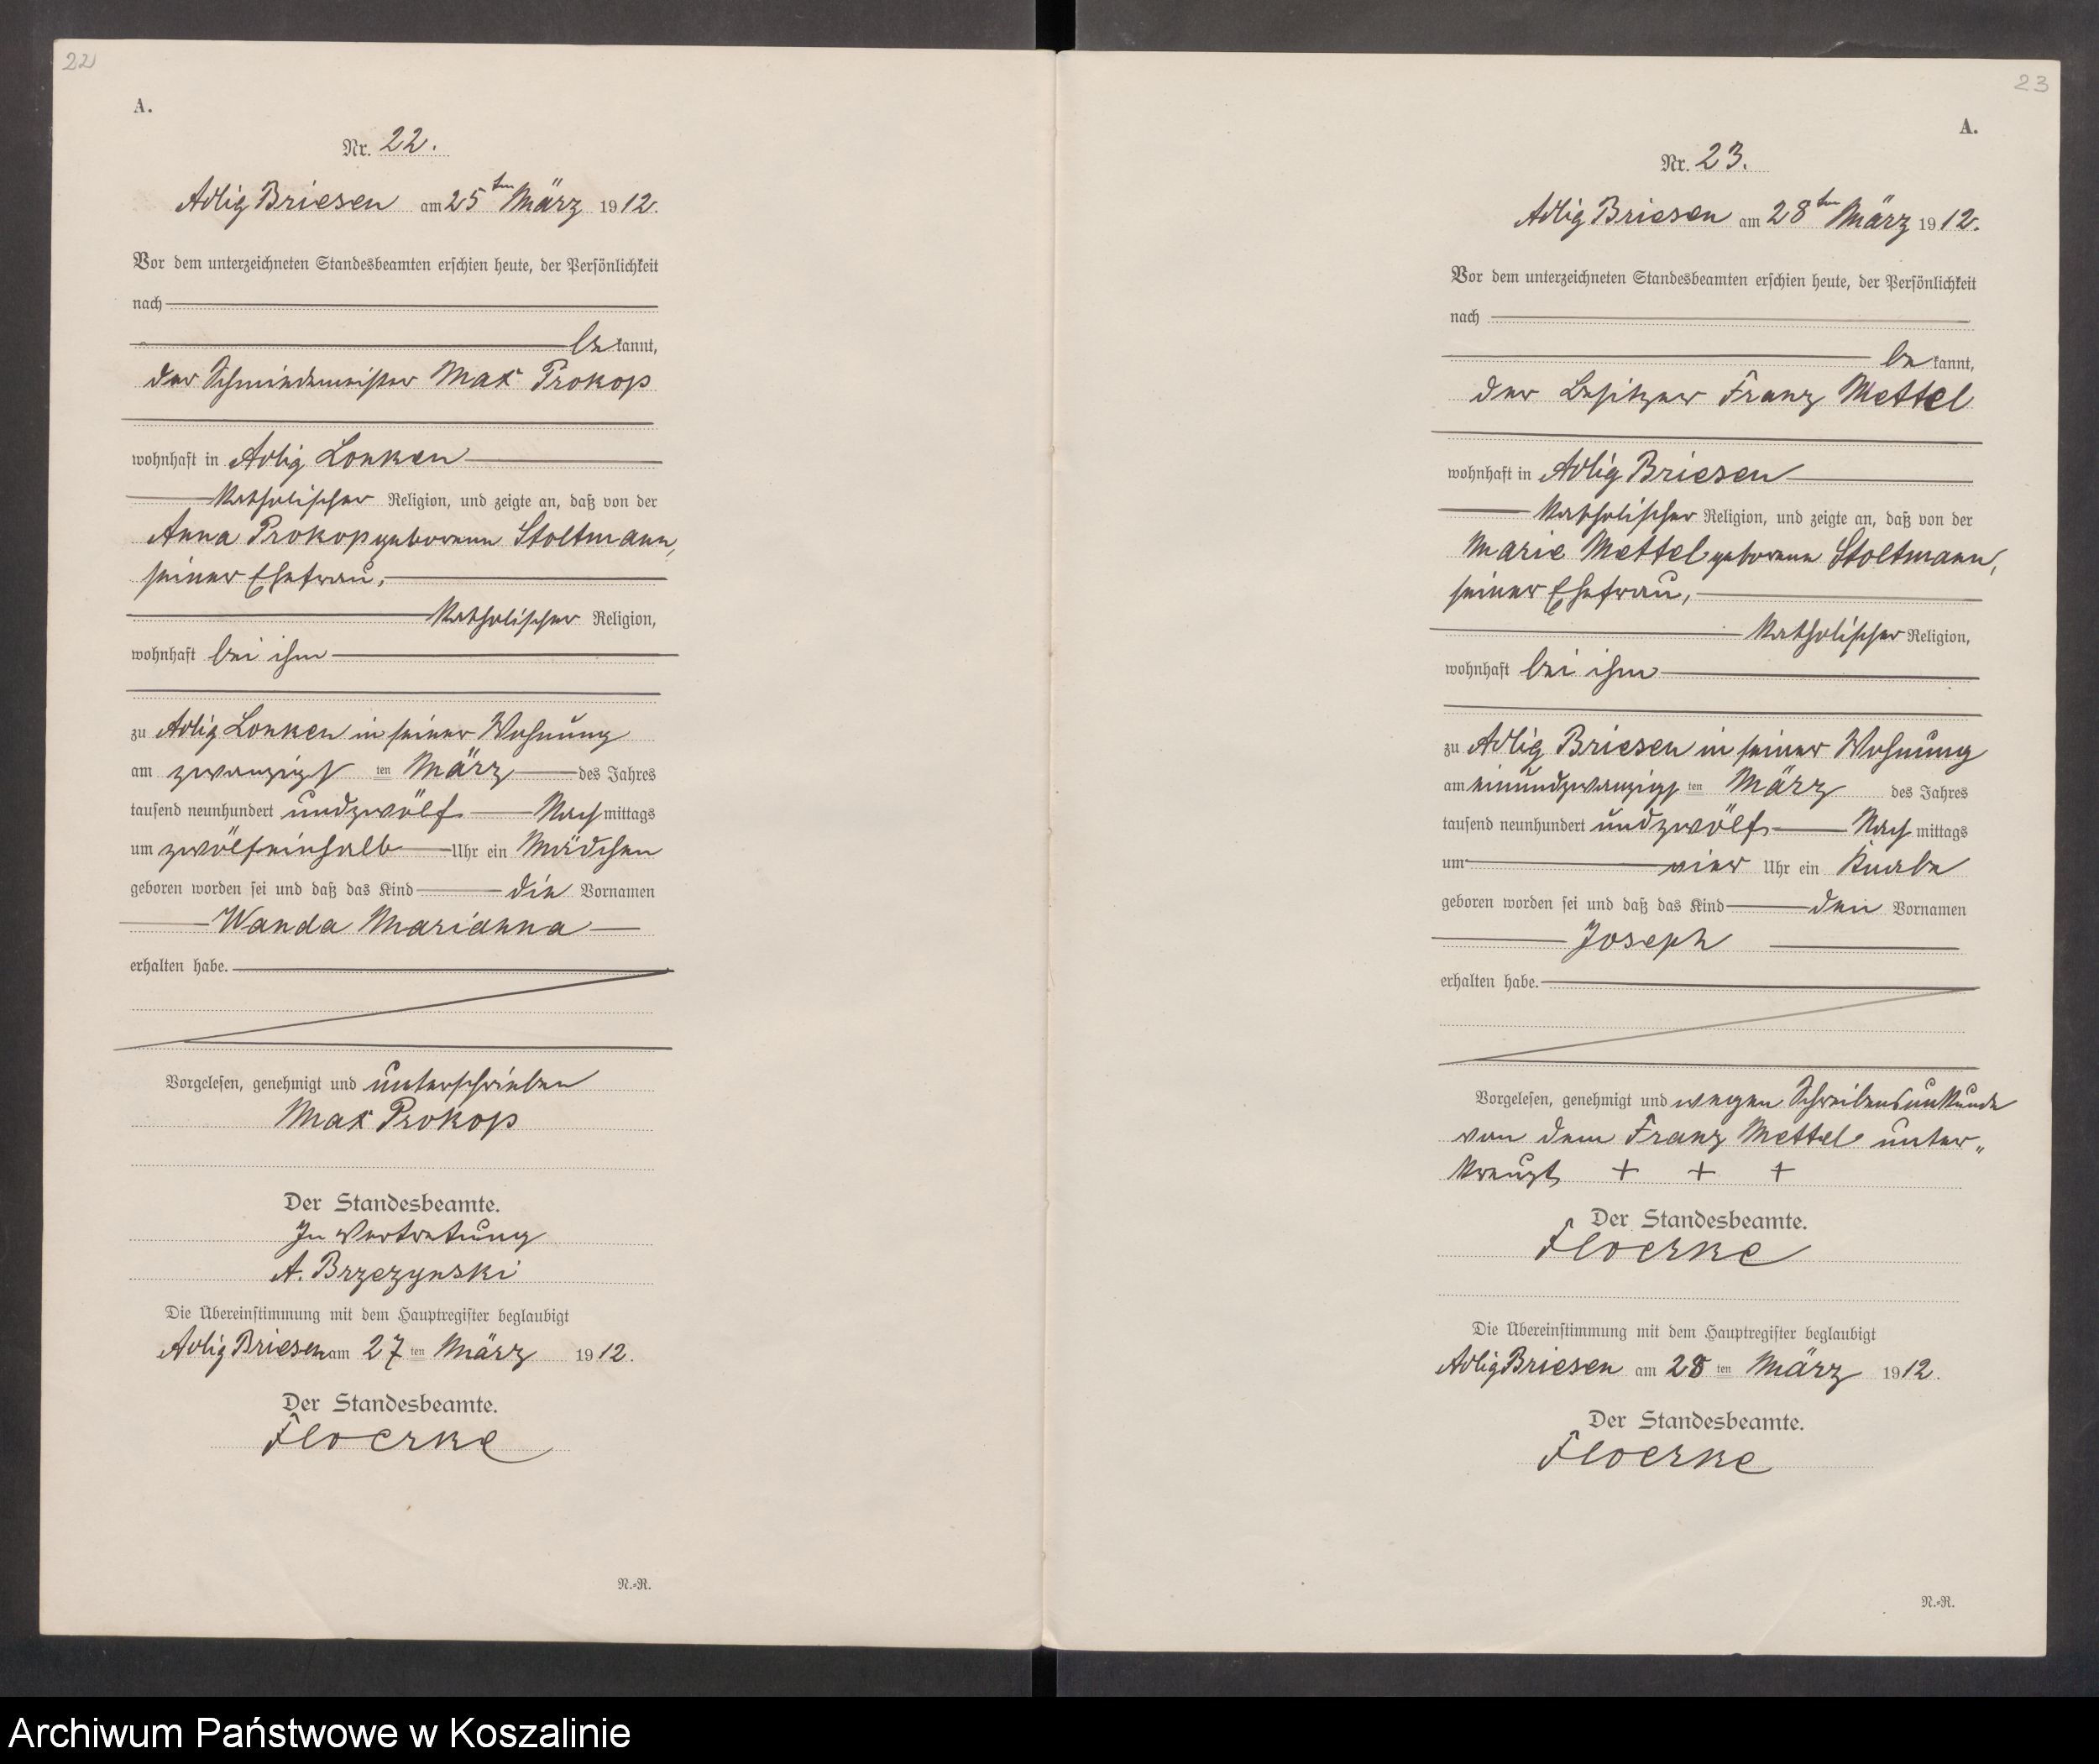 22
A.
Nr. 22.
Adlig Briesen am 25ten März 1912.
Vor dem unterzeichneten Standesbeamten erschien heute, der Persönlichkeit
nach
be kannt,
der Schmiedemeister Max Prokop
wohnhaft in Adlig Lonken
katholischer Religion, und zeigte an, daß von der
Anna Prokop geborenen Stoltmann,
seiner Ehefrau,
katholischer Religion,
wohnhaft bei ihm
zu Adlig Lonken in seiner Wohnung
am zwanzigsten März des Jahres
tausend neunhundert undzwölf Nachmittags
um zwölfeinhalb Uhr ein Mädchen
geboren worden sei und daß das Kind die Vornamen
Wanda Marianna
erhalten habe.
Vorgelesen, genehmigt und unterschrieben
Max Prokop
Der Standesbeamte.
In Vertretung
A. Brzezynski
Die Übereinstimmung mit dem Hauptregister beglaubigt
Adlig Briesen am 27ten März 1912.
Der Standesbeamte.
Floerke
N.=R.
23
A.
Nr. 23.
Adlig Briesen am 28ten März 1912.
Vor dem unterzeichneten Standesbeamten erschien heute, der Persönlichkeit
nach
be kannt,
der Besitzer Franz Mettel
wohnhaft in Adlig Briesen
katholischer Religion, und zeigte an, daß von der
Marie Mettel geborene Stoltmann,
seiner Ehefrau,
katholischer Religion,
wohnhaft bei ihm
zu Adlig Briesen in seiner Wohnung
am einundzwanzigsten März des Jahres
tausend neunhundert undzwölf Nachmittags
um vier Uhr ein Knabe
geboren worden sei und daß das Kind den Vornamen
Joseph
erhalten habe.
Vorgelesen, genehmigt und wegen Schreibensunkunde
von dem Franz Mettel unter„
kreuzt + + +
Der Standesbeamte.
Floerke
Die Übereinstimmung mit dem Hauptregister beglaubigt
Adlig Briesen am 28ten März 1912.
Der Standesbeamte.
Floerke
N.=R.
Archiwum Państwowe w Koszalinie